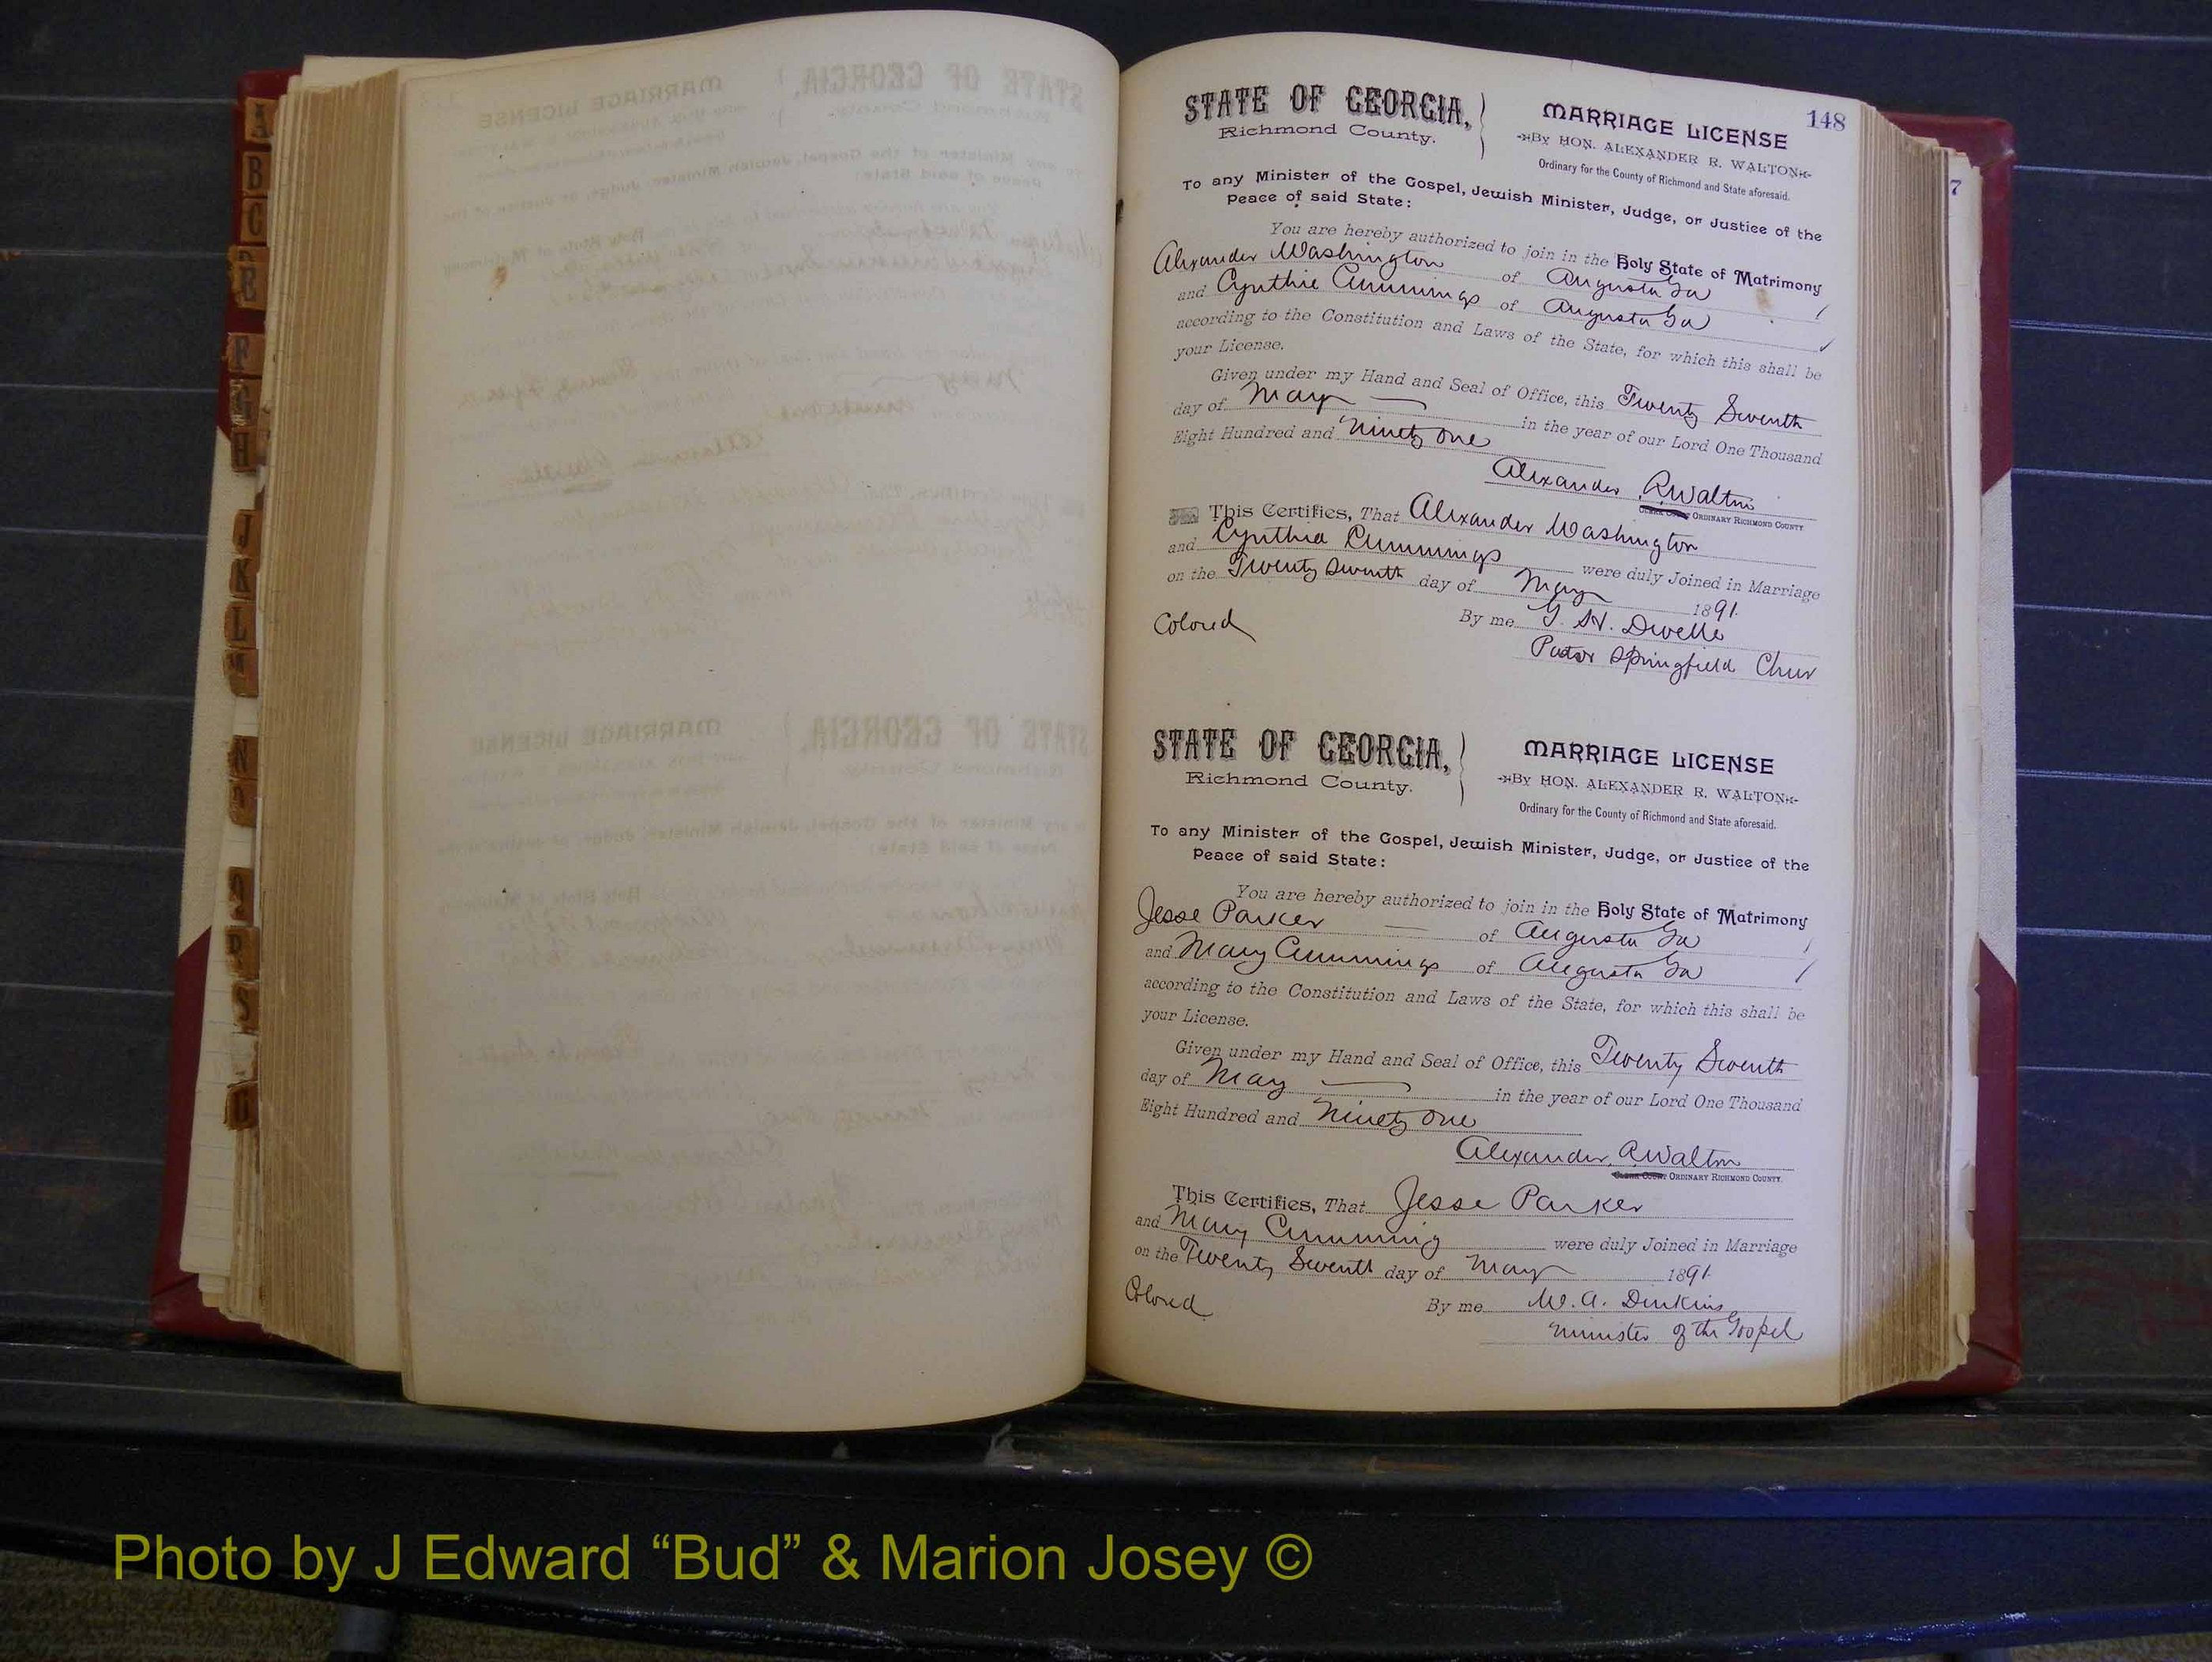 148
STATE OF GEORGIA,
Richmond County.
MARRIAGE LICENSE
By HON. ALEXANDER R. WALTON
Ordinary for the County of Richmond and State aforesaid.
To any Minister of the Gospel, Jewish Minister, Judge, or Justice of the
Peace of said State:
You are hereby authorized to join in the Holy State of Matrimony
Alexander Washington of Augusta Ga
and Cynthie Cummings of Augusta Ga
according to the Constitution and Laws of the State, for which this shall be
your License.
Given under my Hand and Seal of Office, this Twenty Seventh
day of May in the year of our Lord One Thousand
Eight Hundred and Ninety one
Alexander R Walton
ORDINARY RICHMOND COUNTY
This Certifies, That Alexander Washington
and Cynthia Cummings were duly Joined in Marriage
on the Twenty Seventh day of May 1891.
By me G. H. Dwelle
Colored
Pastor Springfield Chur
STATE OF GEORGIA,
Richmond County.
MARRIAGE LICENSE
By HON. ALEXANDER R. WALTON
Ordinary for the County of Richmond and State aforesaid.
To any Minister of the Gospel, Jewish Minister, Judge, or Justice of the
Peace of said State:
You are hereby authorized to join in the Holy State of Matrimony
Jesse Parker of Augusta Ga
and Mary Cummings of Augusta Ga
according to the Constitution and Laws of the State, for which this shall be
your License.
Given under my Hand and Seal of Office, this Twenty Seventh
day of May in the year of our Lord One Thousand
Eight Hundred and Ninety One
Alexander R Walton
ORDINARY RICHMOND COUNTY.
This Certifies, That Jesse Parker
and Mary Cumming were duly Joined in Marriage
on the Twenty Seventh day of May 1891.
Colored
By me W. A. Dinkins
Minister of the Gospel
7
A
B
C
E
F
G
H
J
K
L
M
N
O
P
S
Photo by J Edward “Bud” & Marion Josey ©